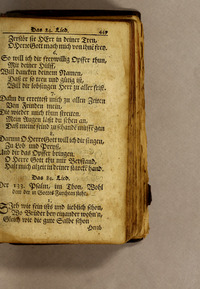 Das 84. Lied.
Zerstör sie HErr in deiner Treu,
O HErre Gott mach mich von ihne frey.
6.
So will ich dir freywillig Opffer thun,
Mit deiner Hülff,
Will dancken deinem Namen,
Daß er so treu und gütig ist,
Will dir lobsingen Herr zu aller frist.
7.
Dann du errettest mich zu allen Zeiten
Von Feinden mein,
Die wieder mich thun streiten,
Mein Augen läst du sehen an,
Daß meine feind zu schand müssen gan
8.
Darum O HErre Gott will ich dir singen,
Zu Lob und Preyß,
Und dir das Opffer bringen,
O HErre Gott thu mir Beystand,
Halt mich alzeit in deiner starck hand.
Das 85. Lied.
Der 133. Psalm, im Thon, Wohl
dem der in Gottes Furchten stehet.
1.
Sieh wie fein ists und lieblich schon,
Wo Brüder bey einander wohnen,
Gleich wie die gute Salbe schon